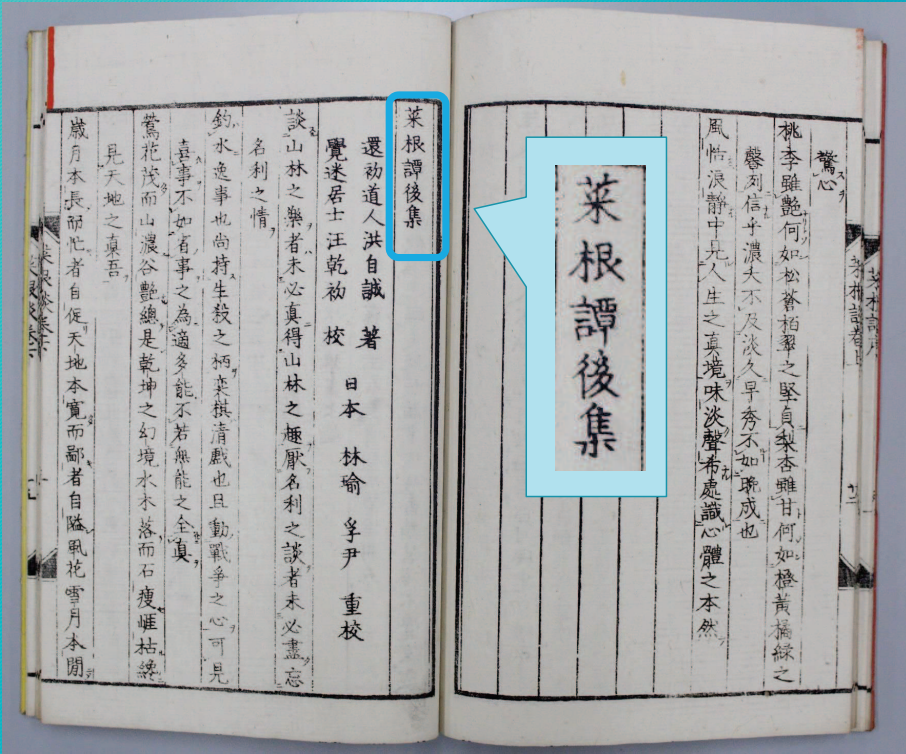 驚心
桃李雖艷何如松蒼栢翠之堅貞梨杏雖甘何如橙黃橘緑之
馨冽信乎濃夭不及淡久早秀不如晩成也
風恬浪靜中見人生之真境味淡聲希處識心體之本然
菜根譚後集
菜根譚後集
還初道人洪自誠 著
覺迷居士汪乾初 校
日本 林瑜 孚尹 重校
談山林之樂者未必真得山林之趣厭名利之談者未必盡忘
名利之情
釣水逸事也尚持生殺之柄奕棋清戲也且動戰爭之心可見
喜事不如省事之為適多能不若無能之全真
鶯花茂而山濃谷艷總是乾坤之幻境水木落而石瘦崕枯纔
見天地之真吾
歳月本長而忙者自促天地本寬而鄙者自隘風花雪月本閒